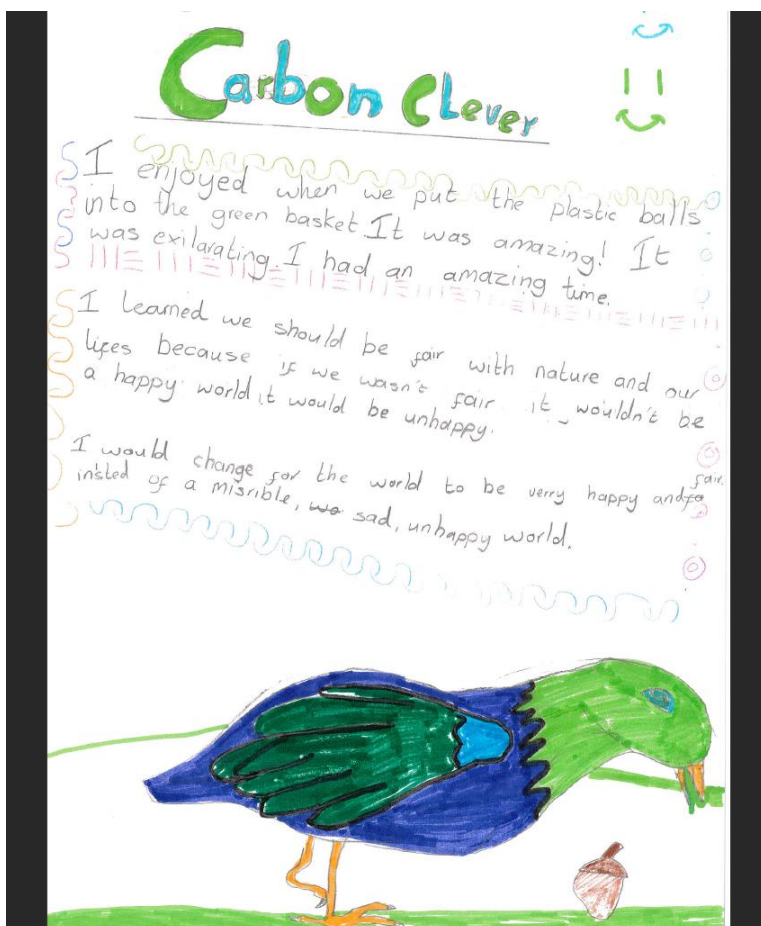 Carbon Clever
I enjoyed when we put the plastic balls
into the green basket. It was amazing! It
was exilarating. I had an amazing time.
I learned we should be fair with nature and our
lifes because if we wasn't fair it wouldn't be
a happy world it would be unhappy.
I would change for the world to be verry happy and fair.
insted of a misrible, sad, unhappy world.